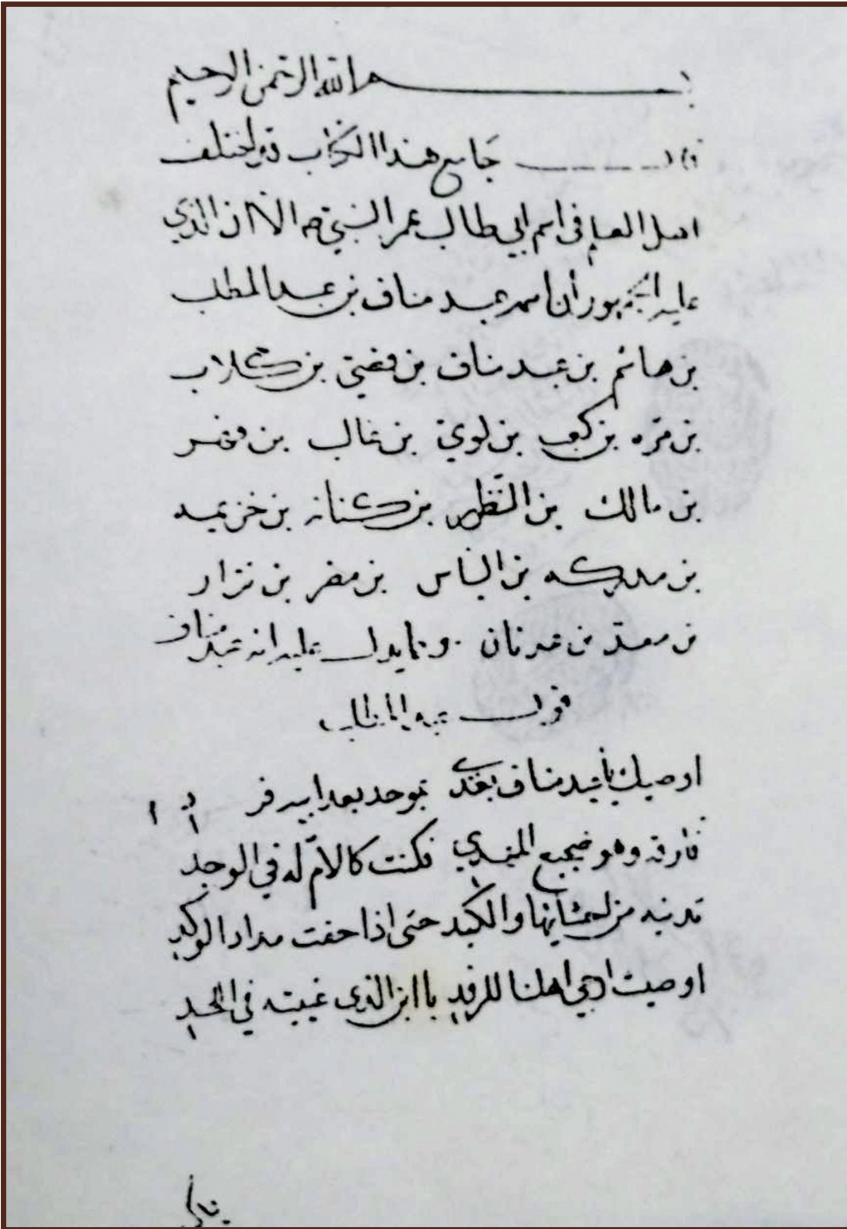 بسم الله الرحمن الرحيم
قال جامع هذا الكتاب قد اختلف
اهل العلم في اسم ابي طالب عم النبي صم الا ان الذي
عليه الجمهور أن اسمه عبد مناف بن عبد المطلب
بن هاشم بن عبد مناف بن قصي بن كلاب
بن مره بن كعب بن لوي بن غالب بن فهر
بن مالك بن النظر بن كنانه بن خزيمه
بن مدركه بن الياس بن مضر بن نزار
بن معد بن عدنان ومما يدل عليه انه عبد مناف
قول عبد المطلب
اوصيك يا عبد مناف بعدي بموحد بعد ابيه فرد
فارقه وهو ضجيع المهدي فكنت كالام له في الوجد
تدنيه من احشايها والكبد حتى اذا خفت مداد الوكد
اوصيت ارجي اهلنا للرفد يا ابن الذي غيبته في اللحد